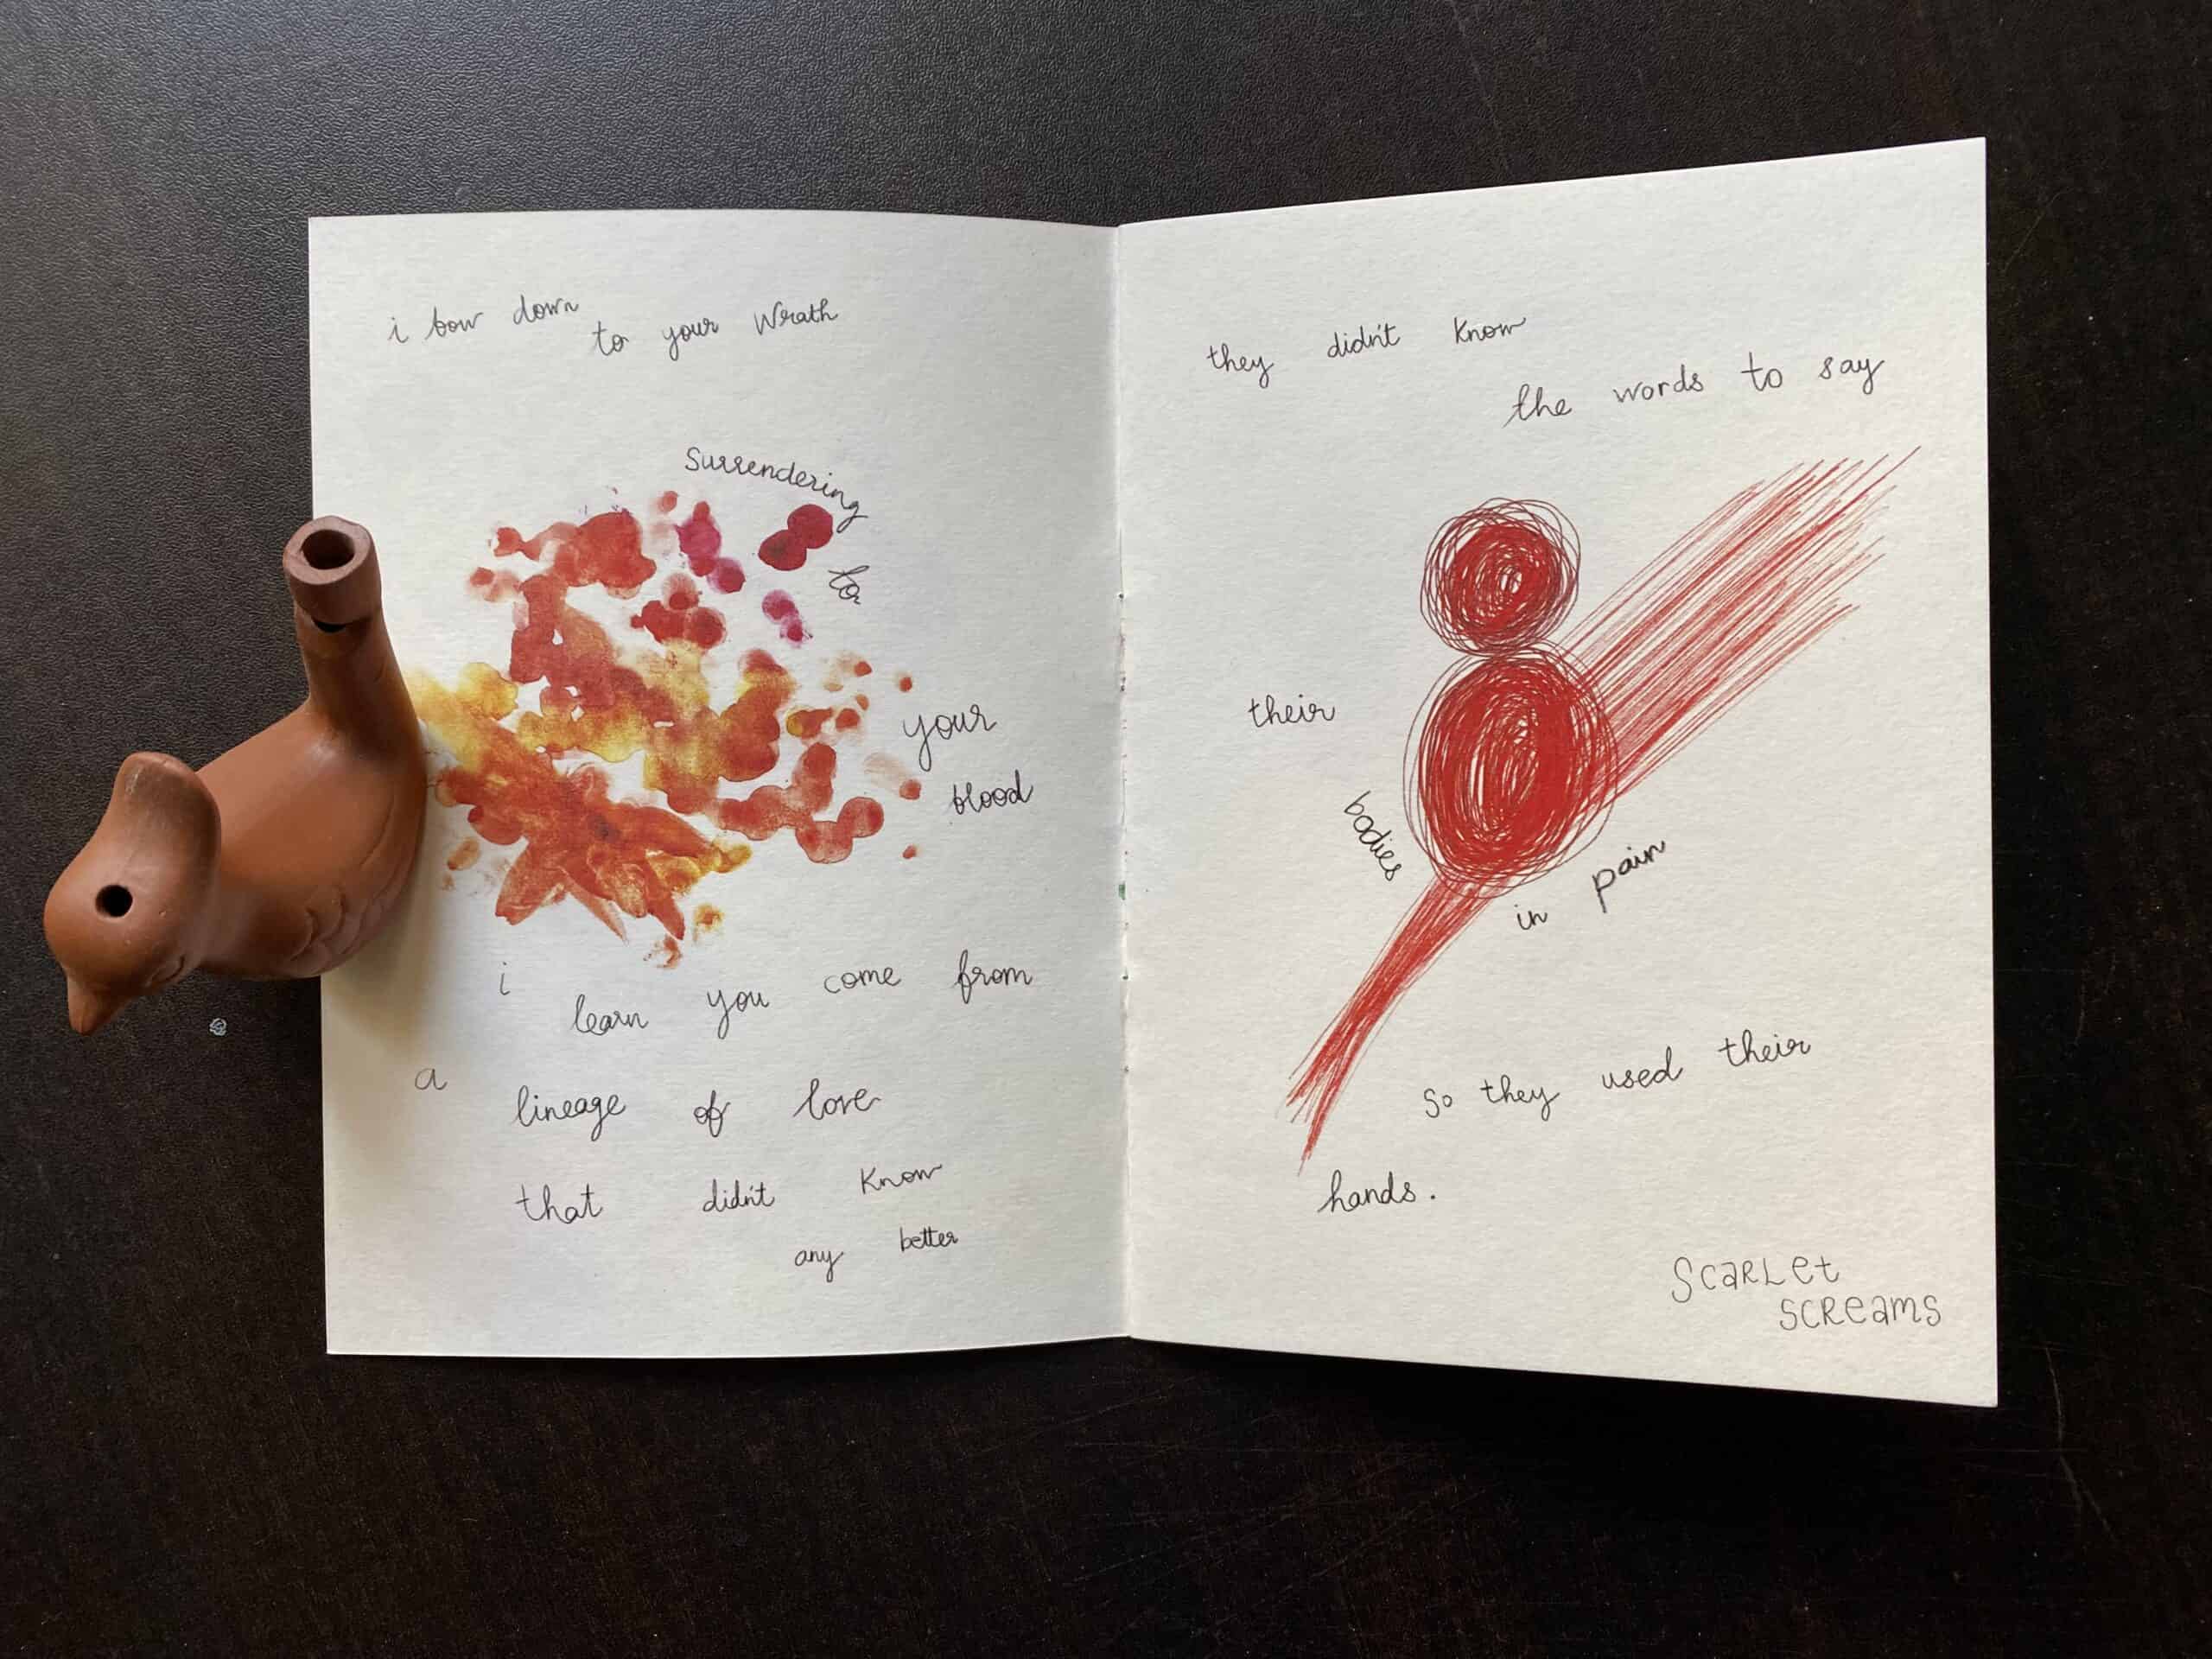 i bow down
to your Wrath
Surrendering
to
your
blood
i learn you come from
a lineage of love
that didn't know
any better
they didn't know
the words to say
their
bodies
in pain
so they used their
hands.
Scarlet
screams